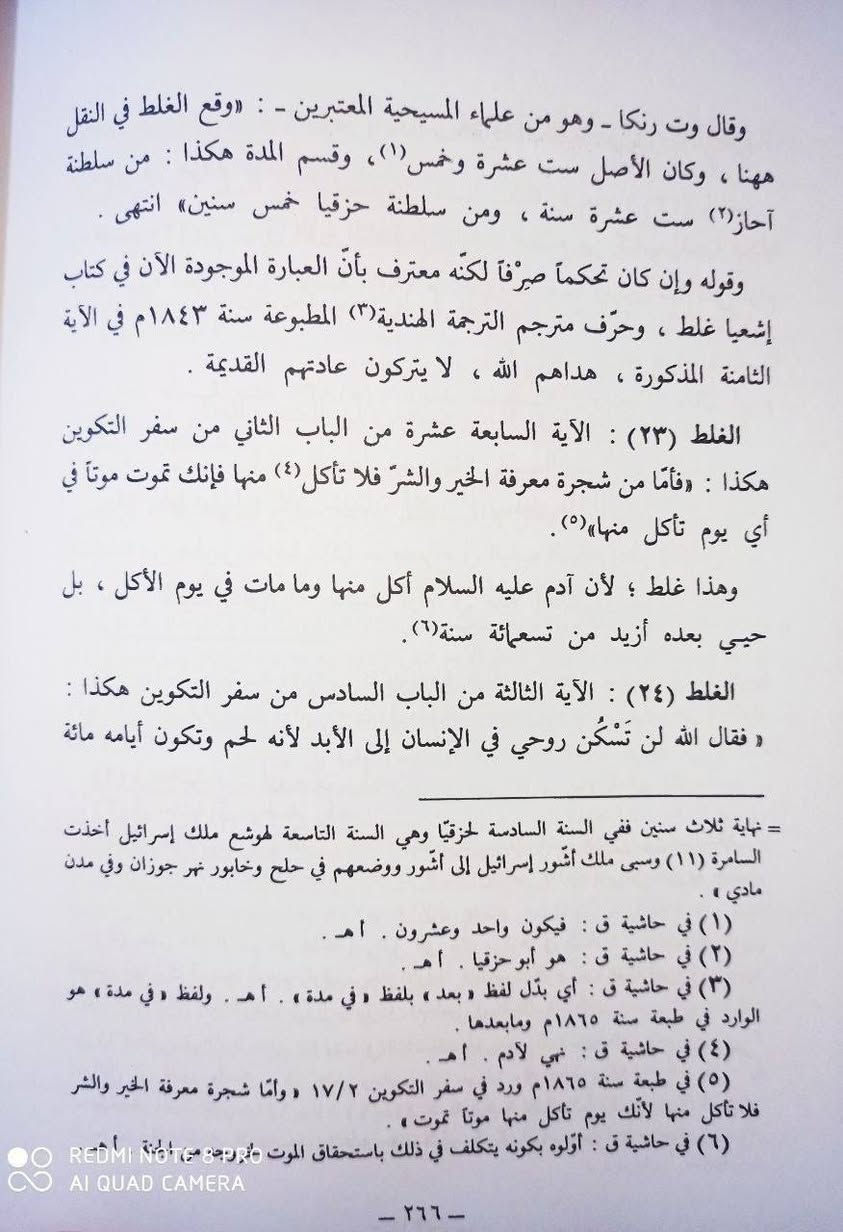 وقال وت رنكا ـ وهو من علماء المسيحية المعتبرين ـ : «وقع الغلط في النقل
ههنا ، وكان الأصل ست عشرة وخمس(١)، وقسم المدة هكذا : من سلطنة
آحاز(٢) ست عشرة سنة ، ومن سلطنة حزقيا خمس سنين» انتهى .
وقوله وإن كان تحكماً صِرْفاً لكنّه معترف بأنّ العبارة الموجودة الآن في كتاب
إشعيا غلط ، وحرّف مترجم الترجمة الهندية(٣) المطبوعة سنة ١٨٤٣م في الآية
الثامنة المذكورة ، هداهم الله ، لا يتركون عادتهم القديمة .
الغلط (٢٣) : الآية السابعة عشرة من الباب الثاني من سفر التكوين
هكذا : «فأمّا من شجرة معرفة الخير والشرّ فلا تأكل(٤) منها فإنك تموت موتاً في
أي يوم تأكل منها»(٥).
وهذا غلط ؛ لأن آدم عليه السلام أكل منها وما مات في يوم الأكل ، بل
حيـي بعده أزيد من تسعمائة سنة(٦).
الغلط (٢٤) : الآية الثالثة من الباب السادس من سفر التكوين هكذا :
« فقال الله لن تَسْكُن روحي في الإنسان إلى الأبد لأنه لحم وتكون أيامه مائة
= نهاية ثلاث سنين ففي السنة السادسة لحزقيّا وهي السنة التاسعة لهوشع ملك إسرائيل أخذت
السامرة (١١) وسبى ملك أشّور إسرائيل إلى أشّور ووضعهم في حلح وخابور نهر جوزان وفي مدن
مادي » .
(١) في حاشية ق : فيكون واحد وعشرون . أ هـ .
(٢) في حاشية ق : هو أبو حزقيا . أ هـ .
(٣) في حاشية ق : أي بدّل لفظ « بعد » بلفظ « في مدة » . أ هـ . ولفظ « في مدة » هو
الوارد في طبعة سنة ١٨٦٥م ومابعدها .
(٤) في حاشية ق : نهي لآدم . أ هـ .
(٥) في طبعة سنة ١٨٦٥م ورد في سفر التكوين ١٧/٢ « وأمّا شجرة معرفة الخير والشر
فلا تأكل منها لأنّك يوم تأكل منها موتاً تموت » .
(٦) في حاشية ق : أوّلوه بكونه يتكلف في ذلك باستحقاق الموت من الجنة . أ هـ .
REDMI NOTE 8 PRO
AI QUAD CAMERA
ـ ٢٦٦ ـ